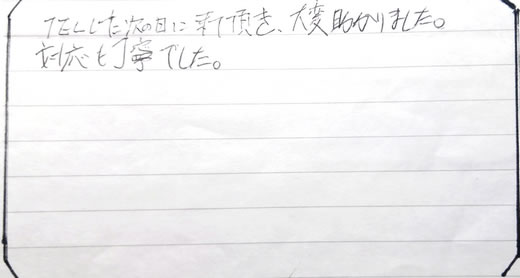 TELした次の日に来て頂き、大変助かりました。
対応も丁寧でした。